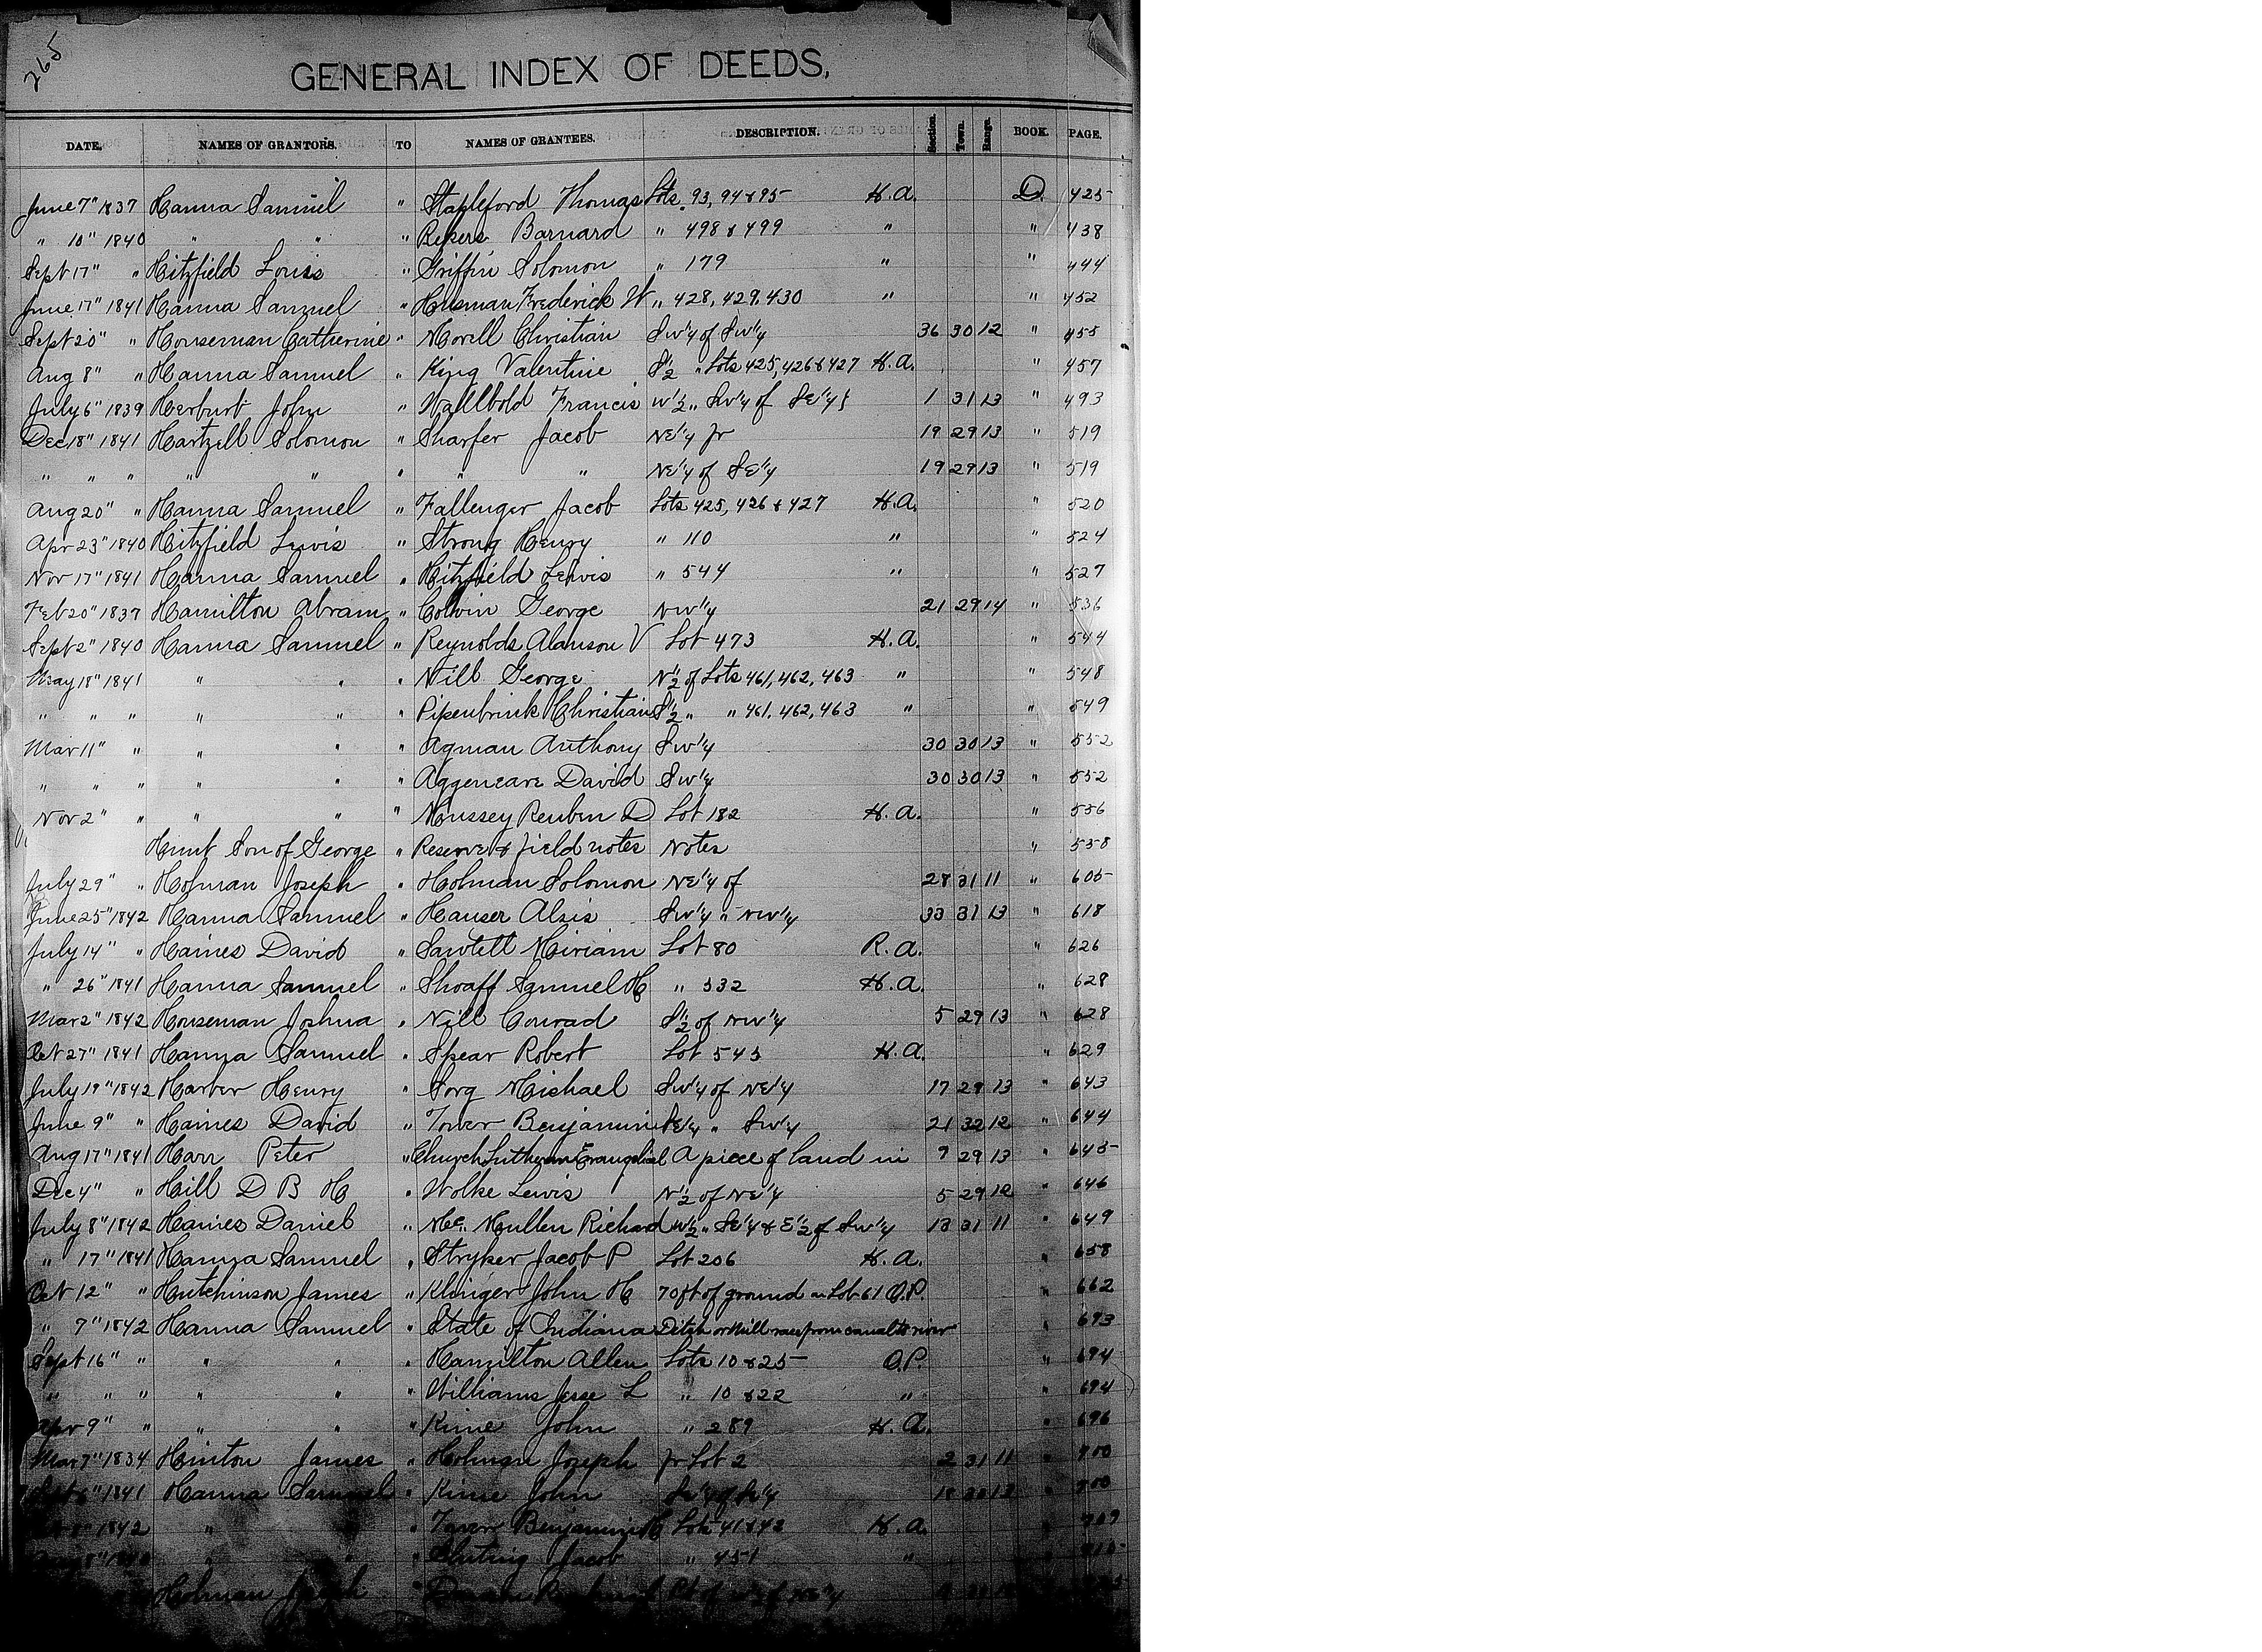 265
GENERAL INDEX OF DEEDS.
DATE. NAMES OF GRANTORS. TO NAMES OF GRANTEES. DESCRIPTION. Section. Town. Range. BOOK. PAGE.
June 7" 1837 Hanna Samuel " Stapleford Thomas Lots 93, 94 & 95 H.A. D. 425
" 10" 1840 " " " Rekers Barnard " 498 & 499 " " 438
Sept 17" " Hitzfield Louis " Griffin Solomon " 179 " " 444
June 17" 1841 Hanna Samuel " Husman Frederick W " 428, 429, 430 " " 452
Sept 20" " Houseman Catherine " Morell Christian Sw 1/4 of Sw 1/4 36 30 12 " 455
Aug 8" " Hanna Samuel " King Valentine S 1/2 " Lots 425, 426 & 427 H.A. " 457
July 6" 1839 Herburt John " Wallbold Francis W 1/2 " Sw 1/4 of Se 1/4 1 31 13 " 493
Dec 18" 1841 Hartzell Solomon " Sharfer Jacob NE 1/4 fr 19 29 13 " 519
" " " " " " " " NE 1/4 of SE 1/4 19 29 13 " 519
Aug 20" " Hanna Samuel " Fallenger Jacob Lots 425, 426 & 427 H.A. " 520
Apr 23" 1840 Hitzfield Lewis " Strong Henry " 110 " " 524
Nov 17" 1841 Hanna Samuel " Hitzfield Lewis " 544 " " 527
Feb 20" 1837 Hamilton Abram " Colvin George NW 1/4 21 29 14 " 536
Sept 2" 1840 Hanna Samuel " Reynolds Alanson V Lot 473 H.A. " 544
May 18" 1841 " " " Nill George N 1/2 of Lots 461, 462, 463 " " 548
" " " " " " Pipenbrink Christian S 1/2 " " 461, 462, 463 " " 549
Mar 11" " " " " Agman Anthony Sw 1/4 30 30 13 " 552
" " " " " " Aggeneare David Sw 1/4 30 30 13 " 552
Nov 2" " " " " Mussey Reuben D Lot 182 H.A. " 556
Hunt Son of George " Reserve & field notes Notes " 558
July 29" " Holman Joseph " Holman Solomon NE 1/4 of 28 31 11 " 605
June 25" 1842 Hanna Samuel " Hauser Alsis Sw 1/4 " NW 1/4 33 31 13 " 618
July 14" " Haines David " Sawtell Miriam Lot 80 R.A. " 626
" 26" 1841 Hanna Samuel " Shoaff Samuel H " 532 H.A. " 628
Mar 2" 1842 Houseman Joshua " Nill Conrad S 1/2 of NW 1/4 5 29 13 " 628
Oct 27" 1841 Hanna Samuel " Spear Robert Lot 543 H.A. " 629
July 19" 1842 Harber Henry " Sorg Michael Sw 1/4 of NE 1/4 17 29 13 " 643
June 9" " Haines David " Tower Benjamin SE 1/4 " Sw 1/4 21 32 12 " 644
Aug 17" 1841 Harr Peter " Church Lutheran Evangelical A piece of land in 9 29 13 " 645
Dec 4" " Hill D B H " Wolke Lewis N 1/2 of NE 1/4 5 29 12 " 646
July 8" 1842 Haines Daniel " Mc Mullen Richard W 1/2 " SE 1/4 & E 1/2 of Sw 1/4 13 31 11 " 649
" 17" 1841 Hanna Samuel " Stryker Jacob P Lot 206 H.A. " 658
Oct 12" " Hutchinson James " Klinger John H 70 ft of ground on Lot 61 O.P. " 662
" 7" 1842 Hanna Samuel " State of Indiana Ditch or Mill race from canal to river " 693
Sept 16" " " " " Hamilton Allen Lots 10 & 25 O.P. " 694
" " " " " " Williams Jesse L " 10 & 22 " " 694
Apr 9" " " " " Kime John " 289 H.A. " 696
Mar 7" 1834 Hinton James " Holman Joseph fr Lot 2 2 31 11 " 700
6" 1841 Hanna Samuel " Kime John " 700
1842 " " " Tower Benjamin H Lots 41 & 42 H.A. " 709
" " " Jacob " 451 "
Holman Joseph "